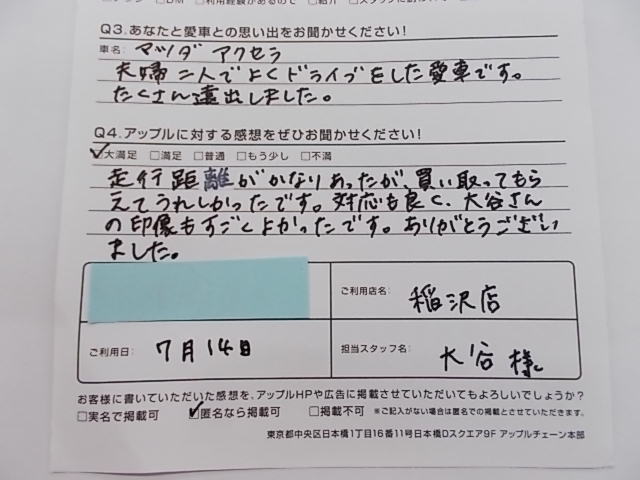 □DM □利用経験があるので □紹介
Q3.あなたと愛車との思い出をお聞かせください!
車名: マツダ アクセラ
夫婦二人でよくドライブをした愛車です。
たくさん遠出しました。
Q4.アップルに対する感想をぜひお聞かせください!
☑大満足 □満足 □普通 □もう少し □不満
走行距離がかなりあったが、買い取ってもら
えてうれしかったです。対応も良く、大谷さん
の印像もすごくよかったです。ありがとうござい
ました。
ご利用店名: 稲沢店
ご利用日: 7月14日
担当スタッフ名: 大谷様
お客様に書いていただいた感想を、アップルHPや広告に掲載させていただいてもよろしいでしょうか?
□実名で掲載可 ☑匿名なら掲載可 □掲載不可 ※ご記入がない場合は匿名での掲載とさせていただきます。
東京都中央区日本橋1丁目16番11号日本橋Dスクエア9F アップルチェーン本部